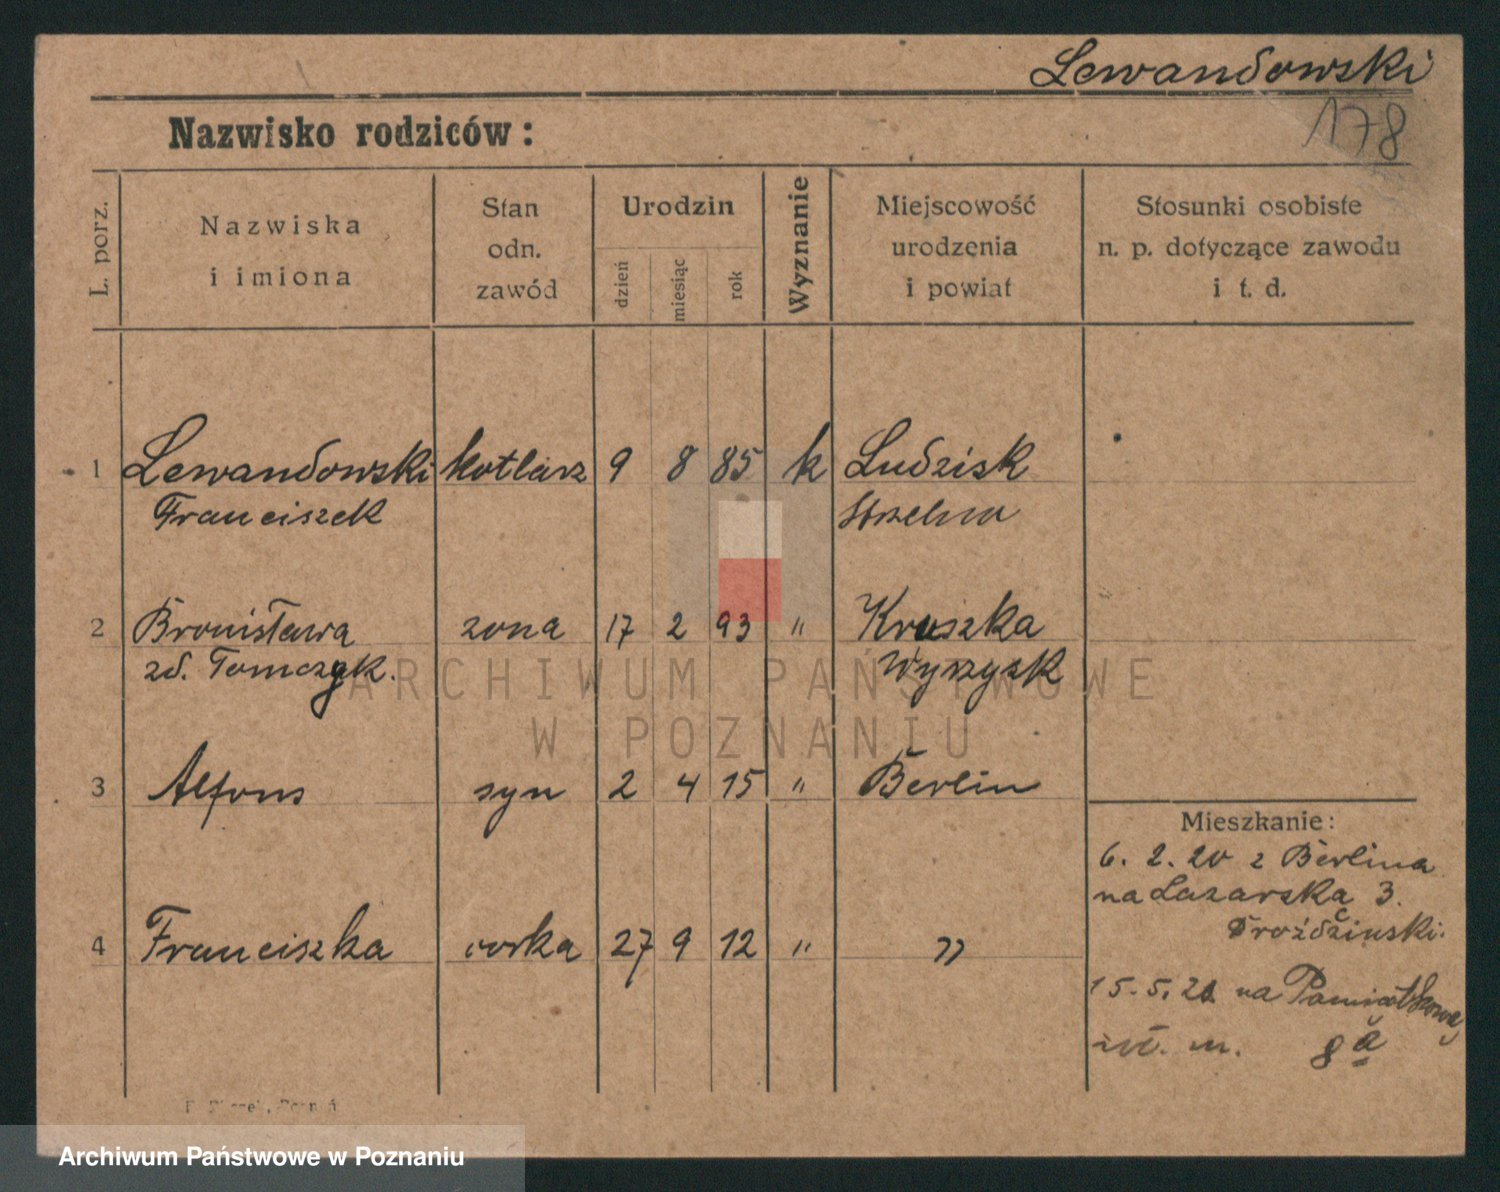 Lewandowski
178
Nazwisko rodziców:
L. porz.
Nazwiska
i imiona
Stan
odn.
zawód
Urodzin
dzień
miesiąc
rok
Wyznanie
Miejscowość
urodzenia
i powiat
Stosunki osobiste
n. p. dotyczące zawodu
i t. d.
1 Lewandowski kotlarz 9 8 85 k Ludzisk
Franciszek Strzelno
2 Bronisława zona 17 2 93 " Kruszka
zd. Tomczyk. Wyrzysk
ARCHIWUM PAŃSTWOWE
W POZNANIU
3 Alfons syn 2 4 15 " Berlin
Mieszkanie:
6. 2. 20 z Berlina
na Lazarska 3.
4 Franciszka corka 27 9 12 " "
15. 5. 21 na Pamiątkową
m. 8a
Archiwum Państwowe w Poznaniu